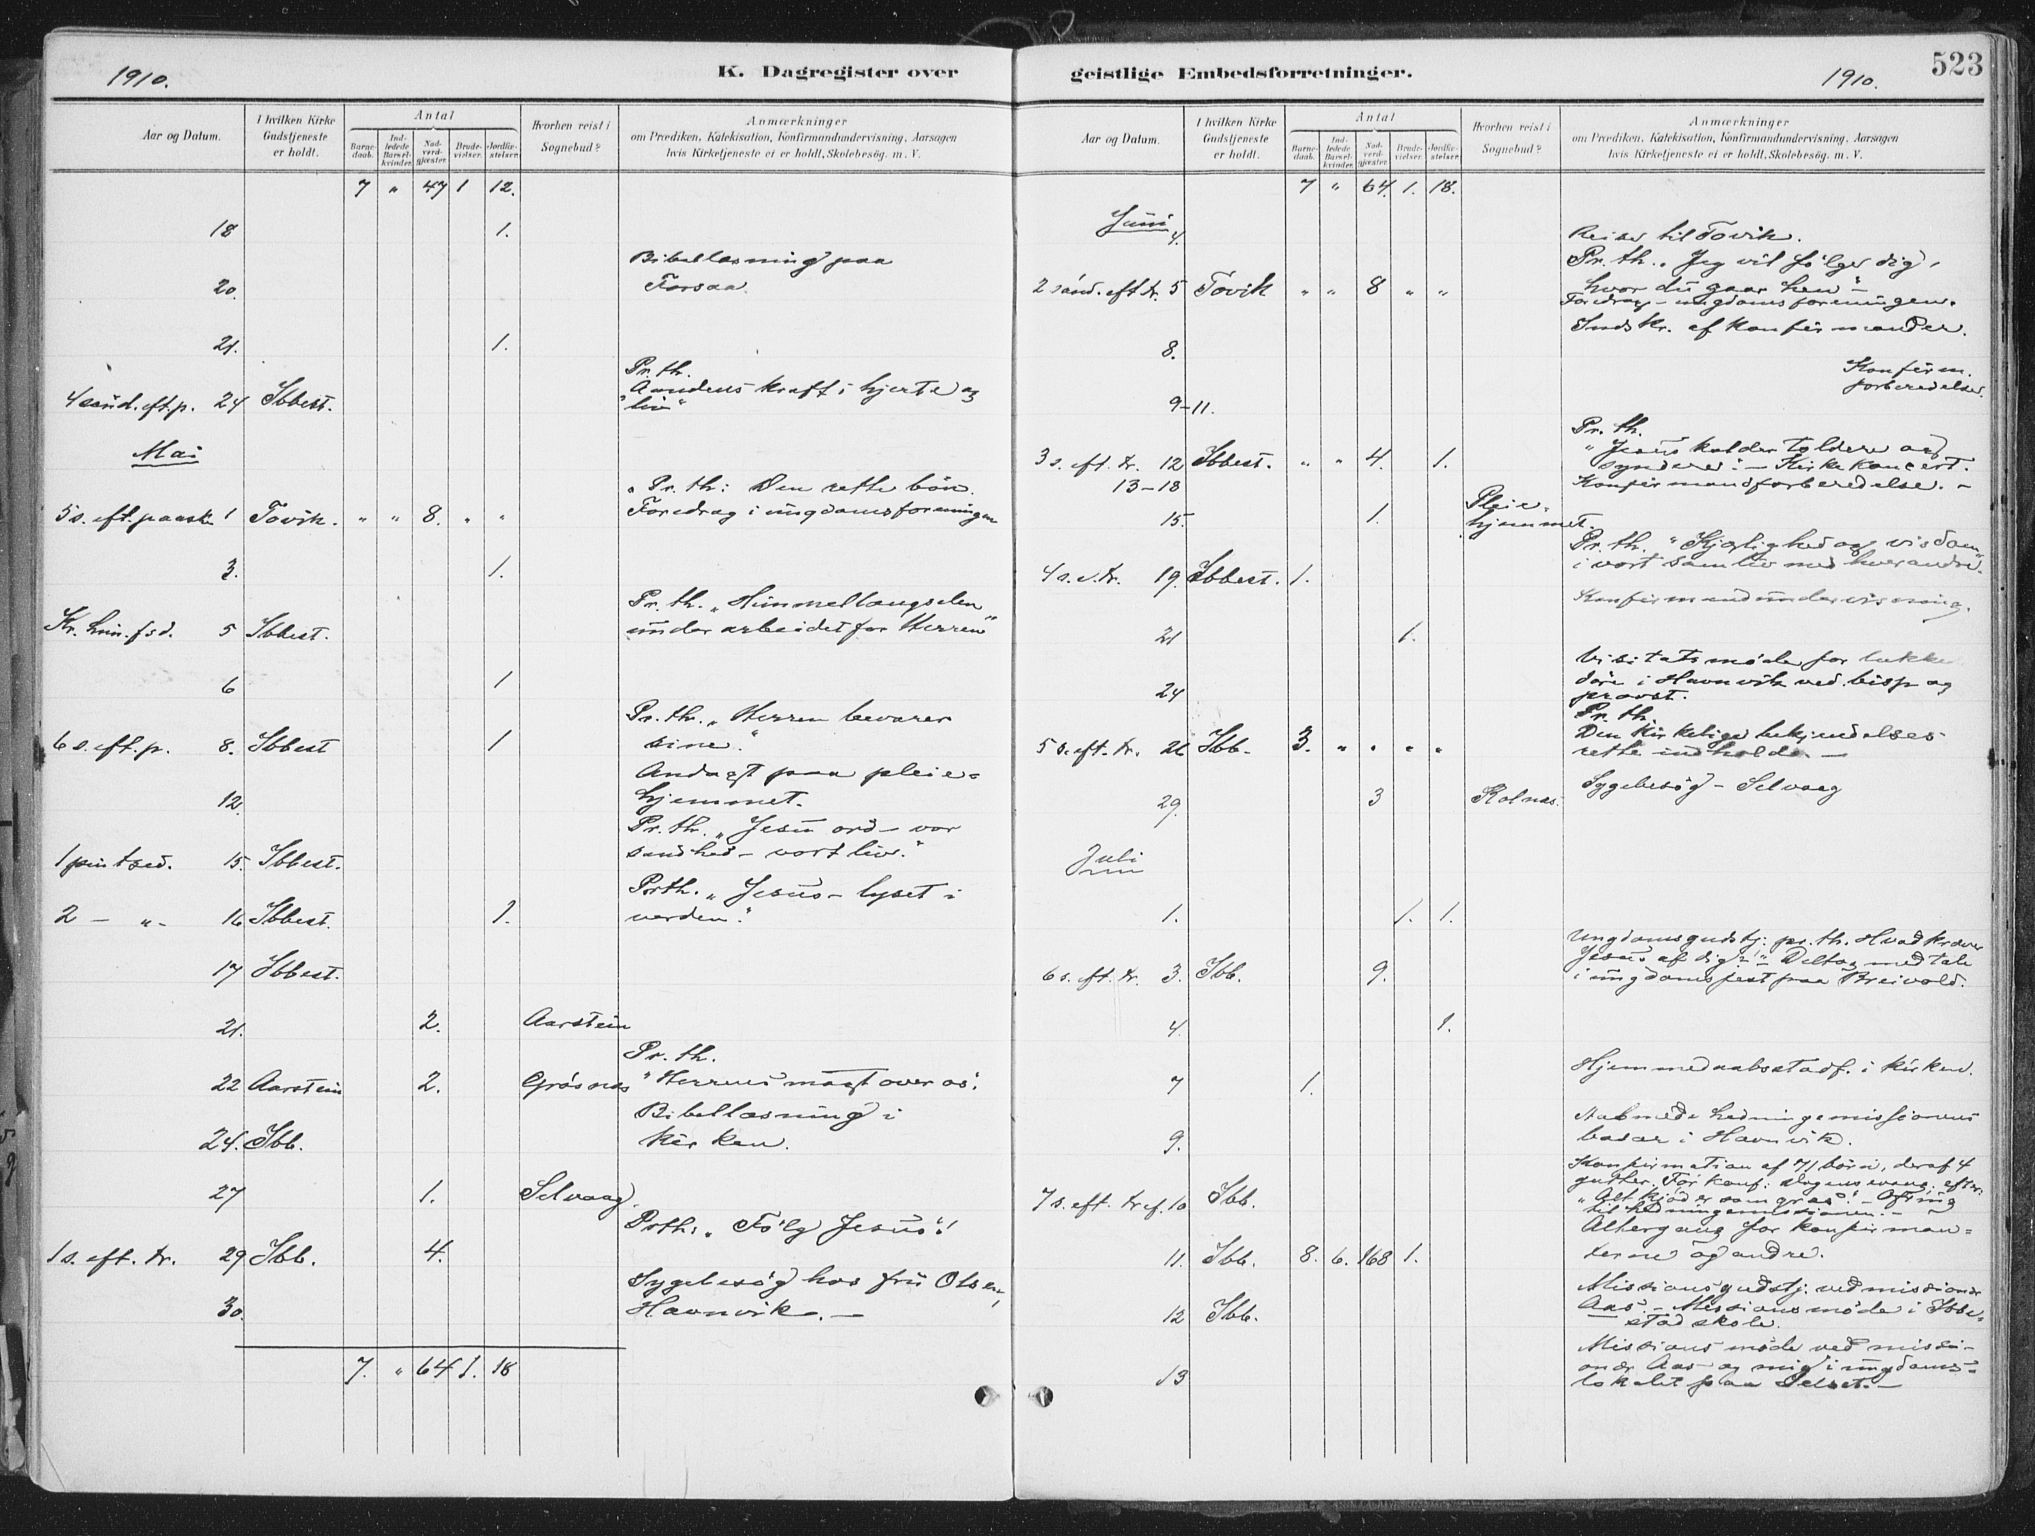 1910.
K. Dagregister over
Aar og Datum.
I hvilken Kirke Gudstjeneste er holdt.
Antal
Barne- daab.
Ind- ledede Barsel- kvinder.
Nad- verd- gjæster.
Brude- vielser.
Jordfæ- stelser.
Hvorhen reist i Sognebud?
Anmærkninger
om Prædiken, Katekisation, Konfirmandundervisning, Aarsagen
hvis Kirketjeneste ei er holdt, Skolebesøg. m. V.
7 " 47 1 12.
18 1.
Bibellæsning paa
20. Forsaa.
21. 1.
Pr. th.
"Aandens kraft i hjerte og
4 sønd. eft. p. 24 Ibbest. liv"
Mai
"Pr. th: Den rette bøn.
5 s. eft. paaske 1 Tovik. " " 8. " " Foredrag i ungdomsforeningen
3. 1.
Pr. th. "Himmellængselen
Kr. him. fsd. 5 Ibbest. under arbeidet for Herren"
6 1
Pr. th. "Herren bevarer
6 s. eft. p. 8. Ibbest 1 sine."
Andagt paa pleie-
12. hjemmet.
Pr. th. "Jesu ord – vor
1 pintsed. 15. Ibbest. sandhed – vort liv."
Pr th. "Jesus – lyset i
2 – " - 16 Ibbest. 1. verden."
17 Ibbest.
21. 2. Aarstein
Pr. th.
22 Aarstein 2. Grøsnes "Herrens magt over os".
Bibellæsning i
24. Ibb. kirken.
27 1. Selvaag.
Pr th: "Følg Jesus"!
1 s. eft. tr. 29 Ibb. 4.
Sygebesøg hos fru Olsen,
30. Havnvik. –
7. " 64 1. 18
geistlige Embedsforretninger.
1910.
523
Aar og Datum.
I hvilken Kirke Gudstjeneste er holdt.
Antal
Barne- daab.
Ind- ledede Barsel- kvinder.
Nad- verd- gjæster.
Brude- vielser.
Jordfæ- stelser.
Hvorhen reist i Sognebud?
Anmærkninger
om Prædiken, Katekisation, Konfirmandundervisning, Aarsagen
hvis Kirketjeneste ei er holdt, Skolebesøg. m. V.
7 " 64. 1. 18.
Juni
4. Reise til Tovik.
Pr. th. "Jeg vil følge dig,
2 sønd. eft tr. 5 Tovik " " 8 " " hvor du gaar hen" –
Foredrag – ungdomsforeningen.
Indskr. af konfirmander.
8.
Konfirm.
forberedelse.
9–11.
Pr. th.
"Jesus kalder toldere og
3 s. eft. tr. 12 Ibbest. " " 4. 1. syndere". – Kirkekoncert.
13–18 Konfirmandforberedelse. –
15. 1. Pleie-
hjemmet.
Pr. th. "Kjærlighed og visdom"
4 s. e. tr. 19. Ibbest. 1. i vort samliv med hverandre.
Konfirmandundervisning.
21 1.
Visitatsmøde for lukkede
24 døre i Havnvik ved bisp og
provst.
Pr. th.
Den kirkelige bekjendelses
5 s. eft. tr. 26 Ibb. 3. " " " " rette indhold. –
29. 3 Kolnes. Sygebesøg – Selvaag
Juli
1. 1. 1.
Ungdomsgudstj: pr. th. Hvad kræver
6 s. eft. tr. 3. Ibb. 9. Jesus af dig?" – Deltog med tale
i ungdomsfest paa Breivold.
4. 1.
7 1. Hjemmedaabsstadf. i kirken.
hedningemissionens
9. basar i Havnvik.
Konfirmation af 71 børn, deraf 4
7 s. eft. tref. 10 Ibb. gutter. For konf: Dagens evang. efter:
"Alt kjød er som græs". – Ofring
til hedningemissionen. –
Altergang for konfirman-
11. Ibb. 8. 6. 168 1. derne og andre.
Missionsgudstj. ved missionær
12 Ibb. Aas. – Missionsmøde i Ibbe-
stad skole.
Missionsmøde ved missi-
onær Aas og mig i ungdoms-
13 lokalet paa Selset. –